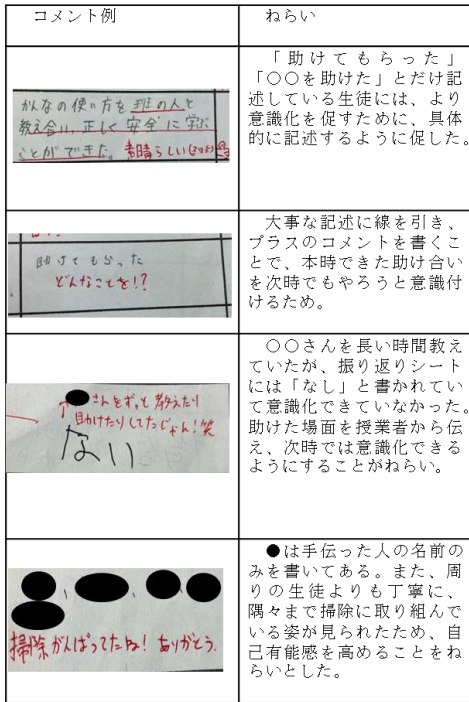 コメント例
ねらい
かんなの使い方を班の人と
教え合い、正しく安全に学ぶ
ことができた。素晴らしい
「助けてもらった」
「〇〇を助けた」とだけ記
述している生徒には、より
意識化を促すために、具体
的に記述するように促した。
助けてもらった
どんなことを!?
大事な記述に線を引き、
プラスのコメントを書くこ
とで、本時できた助け合い
を次時でもやろうと意識付
けるため。
さんをずっと教えたり
助けたりしてたじゃん!笑
ない
〇〇さんを長い時間教え
ていたが、振り返りシート
には「なし」と書かれてい
て意識化できていなかった。
助けた場面を授業者から伝
え、次時では意識化できる
ようにすることがねらい。
掃除がんばってたね! ありがとう。
●は手伝った人の名前の
みを書いてある。また、周
りの生徒よりも丁寧に、
隅々まで掃除に取り組んで
いる姿が見られたため、自
己有能感を高めることをね
らいとした。